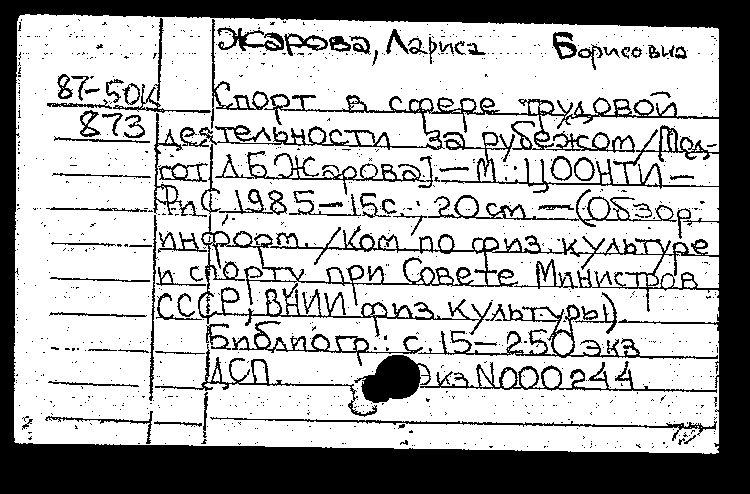 Жарова, Лариса Борисовна
87-50к
873
Спорт в сфере трудовой
деятельности за рубежом/[Под-
гот. Л.Б Жарова].—М.:ЦООНТИ—
ФиС, 1985—15с.; 20 см.—(Обзор.
информ./Ком по физ. культуре
и спорту при Совете Министров
СССР, ВНИИ физ. культуры).
Библиогр.: с. 15—250 экз
ДСП. Экз N000244.